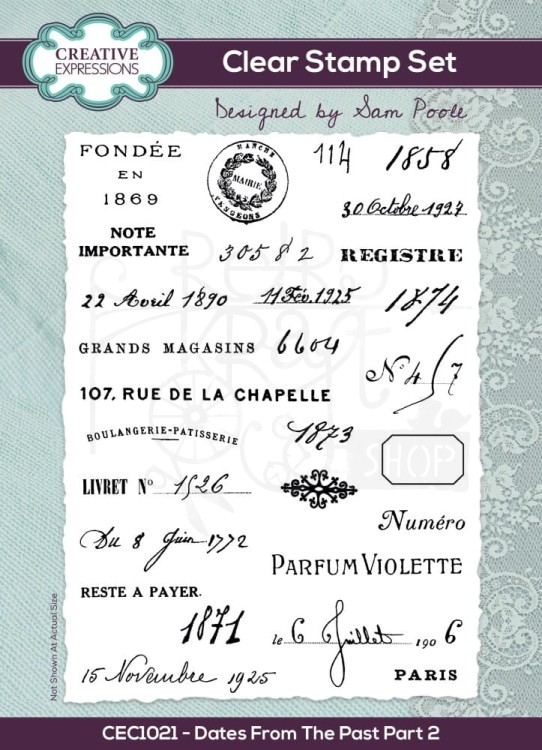 CREATIVE
EXPRESSIONS
Clear Stamp Set
Designed by Sam Poole
FONDÉE
EN
1869
MANCHE
MAIRIE
114
1858
30 Octobre 1927
NOTE
IMPORTANTE
30582
REGISTRE
22 Avril 1890
11 Fév. 1925
1874
GRANDS MAGASINS
6604
Nº 4
7
107, RUE DE LA CHAPELLE
BOULANGERIE-PATISSERIE
1873
SHOP
LIVRET Nº 1526
Numéro
Du 8 Juin 1772
PARFUM VIOLETTE
RESTE A PAYER.
1871
le 6 Juillet 1906
15 Novembre 1925
PARIS
Not Shown At Actual Size
CEC1021 - Dates From The Past Part 2